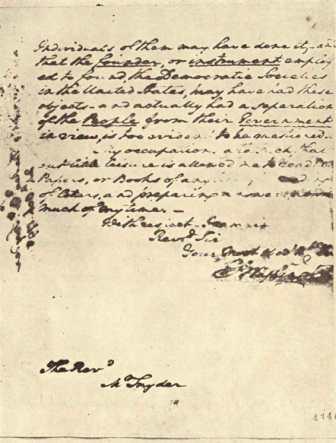 Individuals of them may have done it, and
that the founder, or instrument employ
ed to found, the Democratic Societies
in the United States, may have had these
objects - and actually had a separation
of the People from their Government
in view, is too evident to be questioned.
My occupations are such, that
little leisure is allowed me to read News
Papers, or Books of any
of letters, and preparing
much of my time. -
With respect, I am
Revd Sir
Your Most Obedt
Go Washington
The Revd
Mr Snyder